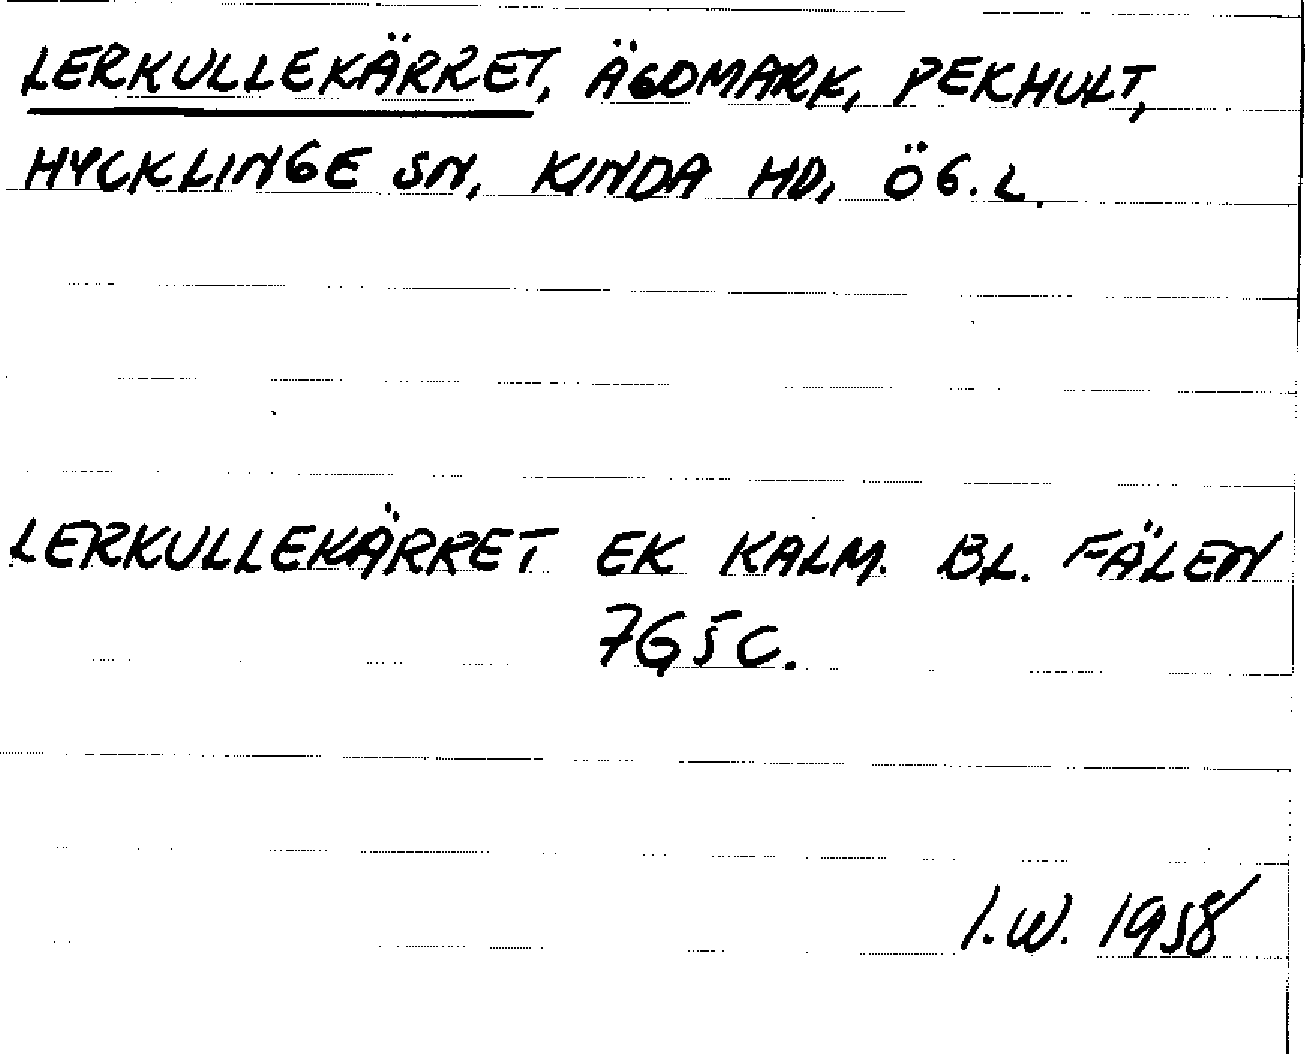 LERKULLEKÄRRET, ÄGOMARK, PEKHULT,
HYCKLINGE SN, KINDA HD, ÖG.L.
LERKULLEKÄRRET EK KALM. BL. FÄLEN
7G5C.
I.W. 1958